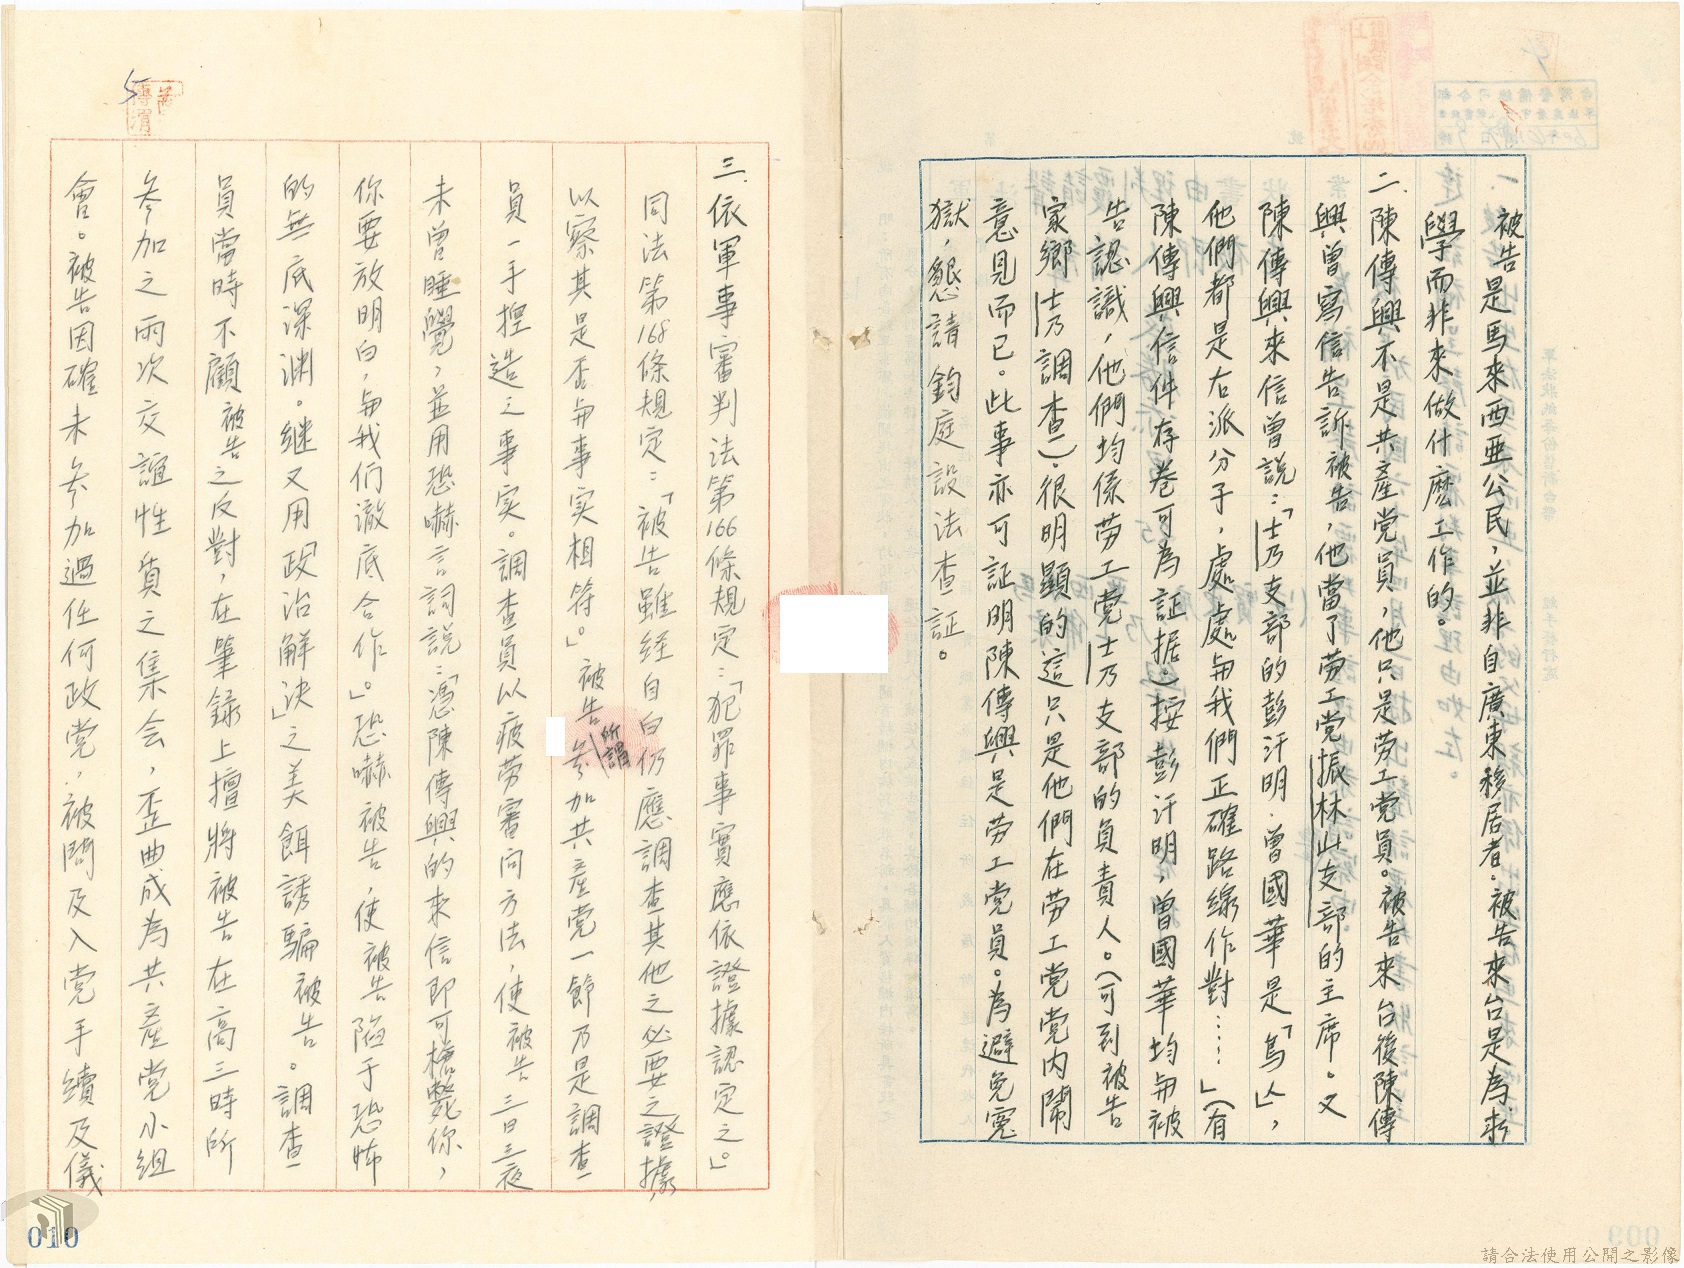 被告是馬來西亜公民，並非自廣東移居者。被告來台是為求
學而非來做什麽工作的。
二.陳傳興不是共產党員，他只是劳工党員。被告來台後陳傳
興曾寫信告訴被告，他當了劳工党振林山支部的主席。又
陳傳興來信曾說：「士乃支部的彭汗明.曾國華是「鳥人」，
他們都是右派分子，處處與我們正確路線作對……」（有
陳傳興信件存卷可為証据。）按彭汗明，曾國華均與被
告認識，他們均係劳工党士乃支部的負責人。（可到被告
家鄉士乃調查）。很明顯的這只是他們在劳工党党内鬧
意見而已。此事亦可証明陳傳興是劳工党員。為避免冤
獄，懇請 鈞庭設法查証。
三.依軍事審判法第166條規定：「犯罪事實應依證據認定之」。
同法第168條規定：「被告雖経自白仍應調查其他之必要之證據，
以察其是否与事实相符。」被告所謂参加共產党一節乃是調查
員一手揑造之事实。調查員以疲劳審问方法，使被告三日三夜
未曾睡覺，並用恐嚇言詞説：「憑陳傳興的来信即可槍斃你，
你要放明白，与我们澈底合作。」恐嚇被告，使被告陷于恐怖
的無底深渊。继又用「政治解決」之美餌誘騙被告。調查
員當時不顧被告之反對，在筆録上擅將被告在高三時所
参加之兩次交誼性質之集会，歪曲成為共產党小组
會。被告因確未参加過任何政党，被問及入党手續及儀
5
010
請合法使用公開之影像